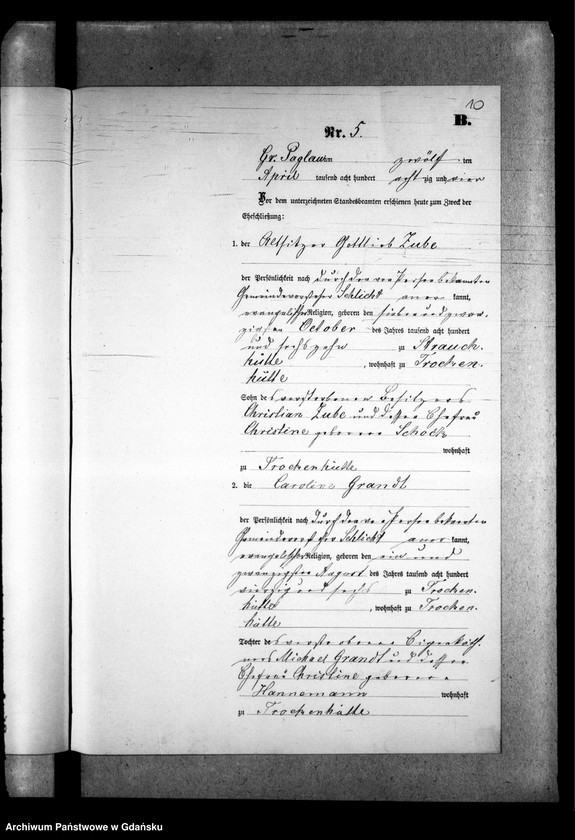 10
B.
Nr. 5.
Gr. Paglau am zwölf ten
April tausend acht hundert acht zig und vier
Vor dem unterzeichneten Standesbeamten erschienen heute zum Zweck der
Eheschließung:
1. der Altsitzer Gottlieb Zube
der Persönlichkeit nach durch den von Person bekannten
Gemeindevorsteher Schlicht aner kannt,
evangelischer Religion, geboren den sieben und zwan-
zigsten October des Jahres tausend acht hundert
und sechszehn zu Strauch-
hütte, wohnhaft zu Trocken-
hütte
Sohn des verstorbenen Besitzers
Christian Zube und dessen Ehefrau
Christine geborene Schock
wohnhaft
zu Trockenhütte
2. die Caroline Grandt
der Persönlichkeit nach durch den von Person bekannten
Gemeindevorsteher Schlicht aner kannt,
evangelischer Religion, geboren den ein und
zwanzigsten August des Jahres tausend acht hundert
vierzig und sechs zu Trocken-
hütte, wohnhaft zu Trocken-
hütte
Tochter des verstorbenen Eigenkäth-
ners Michael Grandt und dessen
Ehefrau Christine geborene
Hannemann wohnhaft
zu Trockenhütte
Archiwum Państwowe w Gdańsku